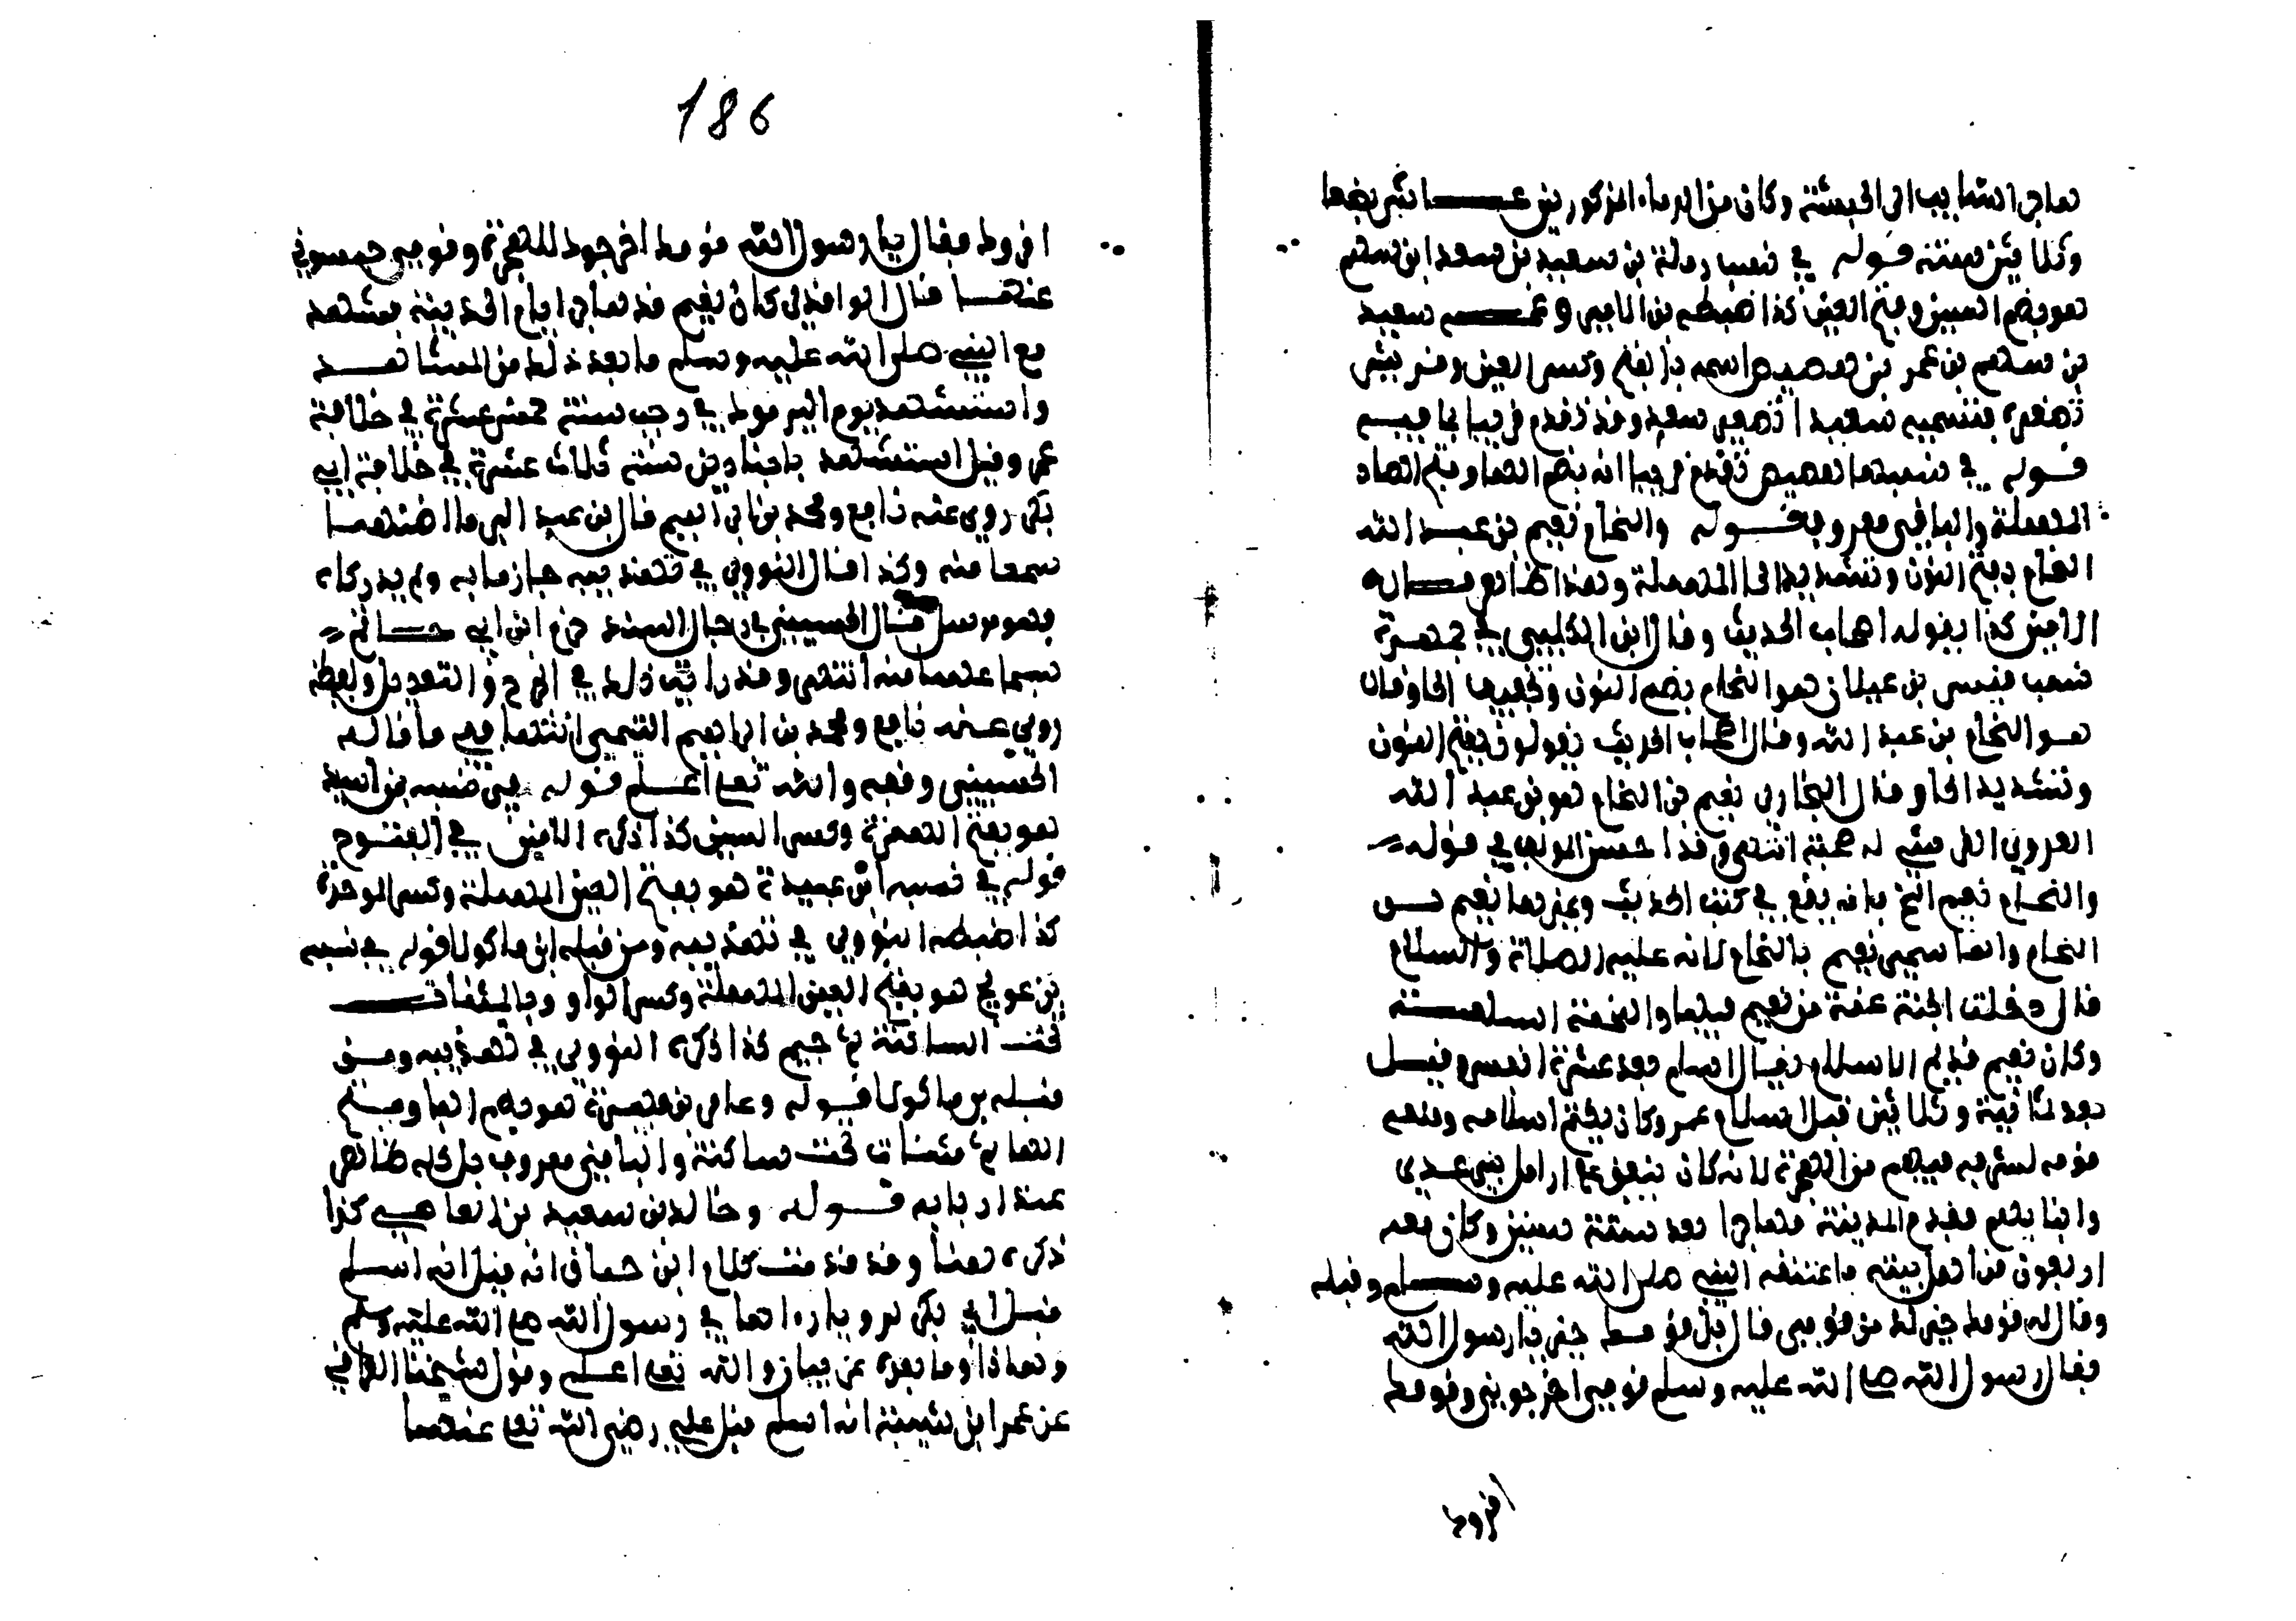 هاجر السايب الى الحبشة وكان من الرماة المذكورين عاش بضعا
وثلاثين سنة قوله في نسب رملة بن سعيد بن سعد ابن سهم
هو بضم السين وفتح العين كذا ضبطه بن الامير وعمه سعيد
بن سهم بن عمر بن هصيص اسمه بالفتح وكسر العين وقريش
تصغره فتسميه سعيد اتصغير سعد وقد تقدم قريبا بما فيه
قوله في نسبها هصيص تقدم قريبا انه بضم الهاء وفتح الصاد
المهملة والباقي معروف قوله والنحام نعيم بن عبد الله
النحام بفتح النون وتشديد الحا المهملة وهذا ظاهر قاله
الامير كذا يقوله اصحاب الحديث وقال ابن الكلبي في جمهرة
نسب قيس بن عيلان هو النحام بضم النون وتخفيف الحا وقال
هو النحام بن عبد الله وقال اصحاب الحديث يقولون بفتح النون
وتشديد الحا وقال البخاري نعيم بن النحام هو بن عبد الله
العدوي القرشي له صحبة انتهى وقد احسن المولف في قوله
والنحام نعيم الخ فانه يقع في كتب الحديث وغيرها نعيم بن
النحام وانما سمي نعيم بالنحام لانه عليه الصلاة والسلام
قال دخلت الجنة فسمعت نحمة من نعيم فيها والنحمة السعلة
وكان نعيم قديم الاسلام يقال اسلم بعد عشرة انفس وقيل
بعد ثمانية وثلاثين قبل اسلام عمر وكان يكتم اسلامه ومنعه
قومه لشرفه فيهم من الهجرة لانه كان ينفق على ارامل بني عدي
وايتامهم فقدم المدينة مهاجرا بعد ستة سنين وكان معه
اربعون من اهل بيته فاعتنقه النبي صلى الله عليه وسلم وقبله
وقال له قومك خير لك من قومي قال بل قومك خير يا رسول الله
فقال رسول الله صلى الله عليه وسلم قومي اخرجوني وقومك
اقروك
186
اقروك فقال يا رسول الله قومك اخرجوك للهجرة وقومي حبسوني
عنها قال الواقدي كان نعيم قد هاجر ايام الحديبية فشهد
مع النبي صلى الله عليه وسلم ما بعد ذلك من المشاهد
واستشهد يوم اليرموك في رجب سنة خمس عشرة في خلافة
عمر وقيل استشهد باجنادين سنة ثلاث عشرة في خلافة ابي
بكر روى عنه نافع ومحمد بن ابراهيم قال بن عبد البر ما اظنهما
سمعا منه وكذا قال النووي في تهذيبه جازما به ولم يدركاه
فهو مرسل قال الحسيني في رجال المسند جزم ابن ابي حاتم
بسماعهما منه انتهى وقد رايت ذلك في الجرح والتعديل ولفظه
روى عنه نافع ومحمد بن ابراهيم التيمي انتهى ففي ما قاله
الحسيني وقفه والله تعالى اعلم قوله في نسبه بن اسيد
هو بفتح الهمزة وكسر السين كذا ذكره الامير في المفتوح
قوله في نسبه ابن عبيدة هو بفتح العين المهملة وكسر الموحدة
كذا ضبطه النووي في تهذيبه ومن قبله ابن ماكولا قوله في نسبه
بن عويج هو بفتح العين المهملة وكسر الواو وبالمثناة
تحت الساكنة ثم جيم كذا ذكره النووي في تهذيبه ومن
قبله بن ماكولا قوله وعامر بن فهيرة هو بضم الفا وفتح
الها ثم مثناة تحت ساكنة والباقي معروف بل كله ظاهر
عند اربابه قوله وخالد بن سعيد بن العاصي كذا
ذكره هنا وقد قدمت كلام ابن اسحاق انه قيل انه اسلم
قبل ابي بكر لرويا راها في رسول الله صلى الله عليه وسلم
وهذا وما بعده عن بيان والله تعالى اعلم وقول شيخنا العراقي
عن عمر ابن شيبة انه اسلم قبل علي رضي الله تعالى عنهما